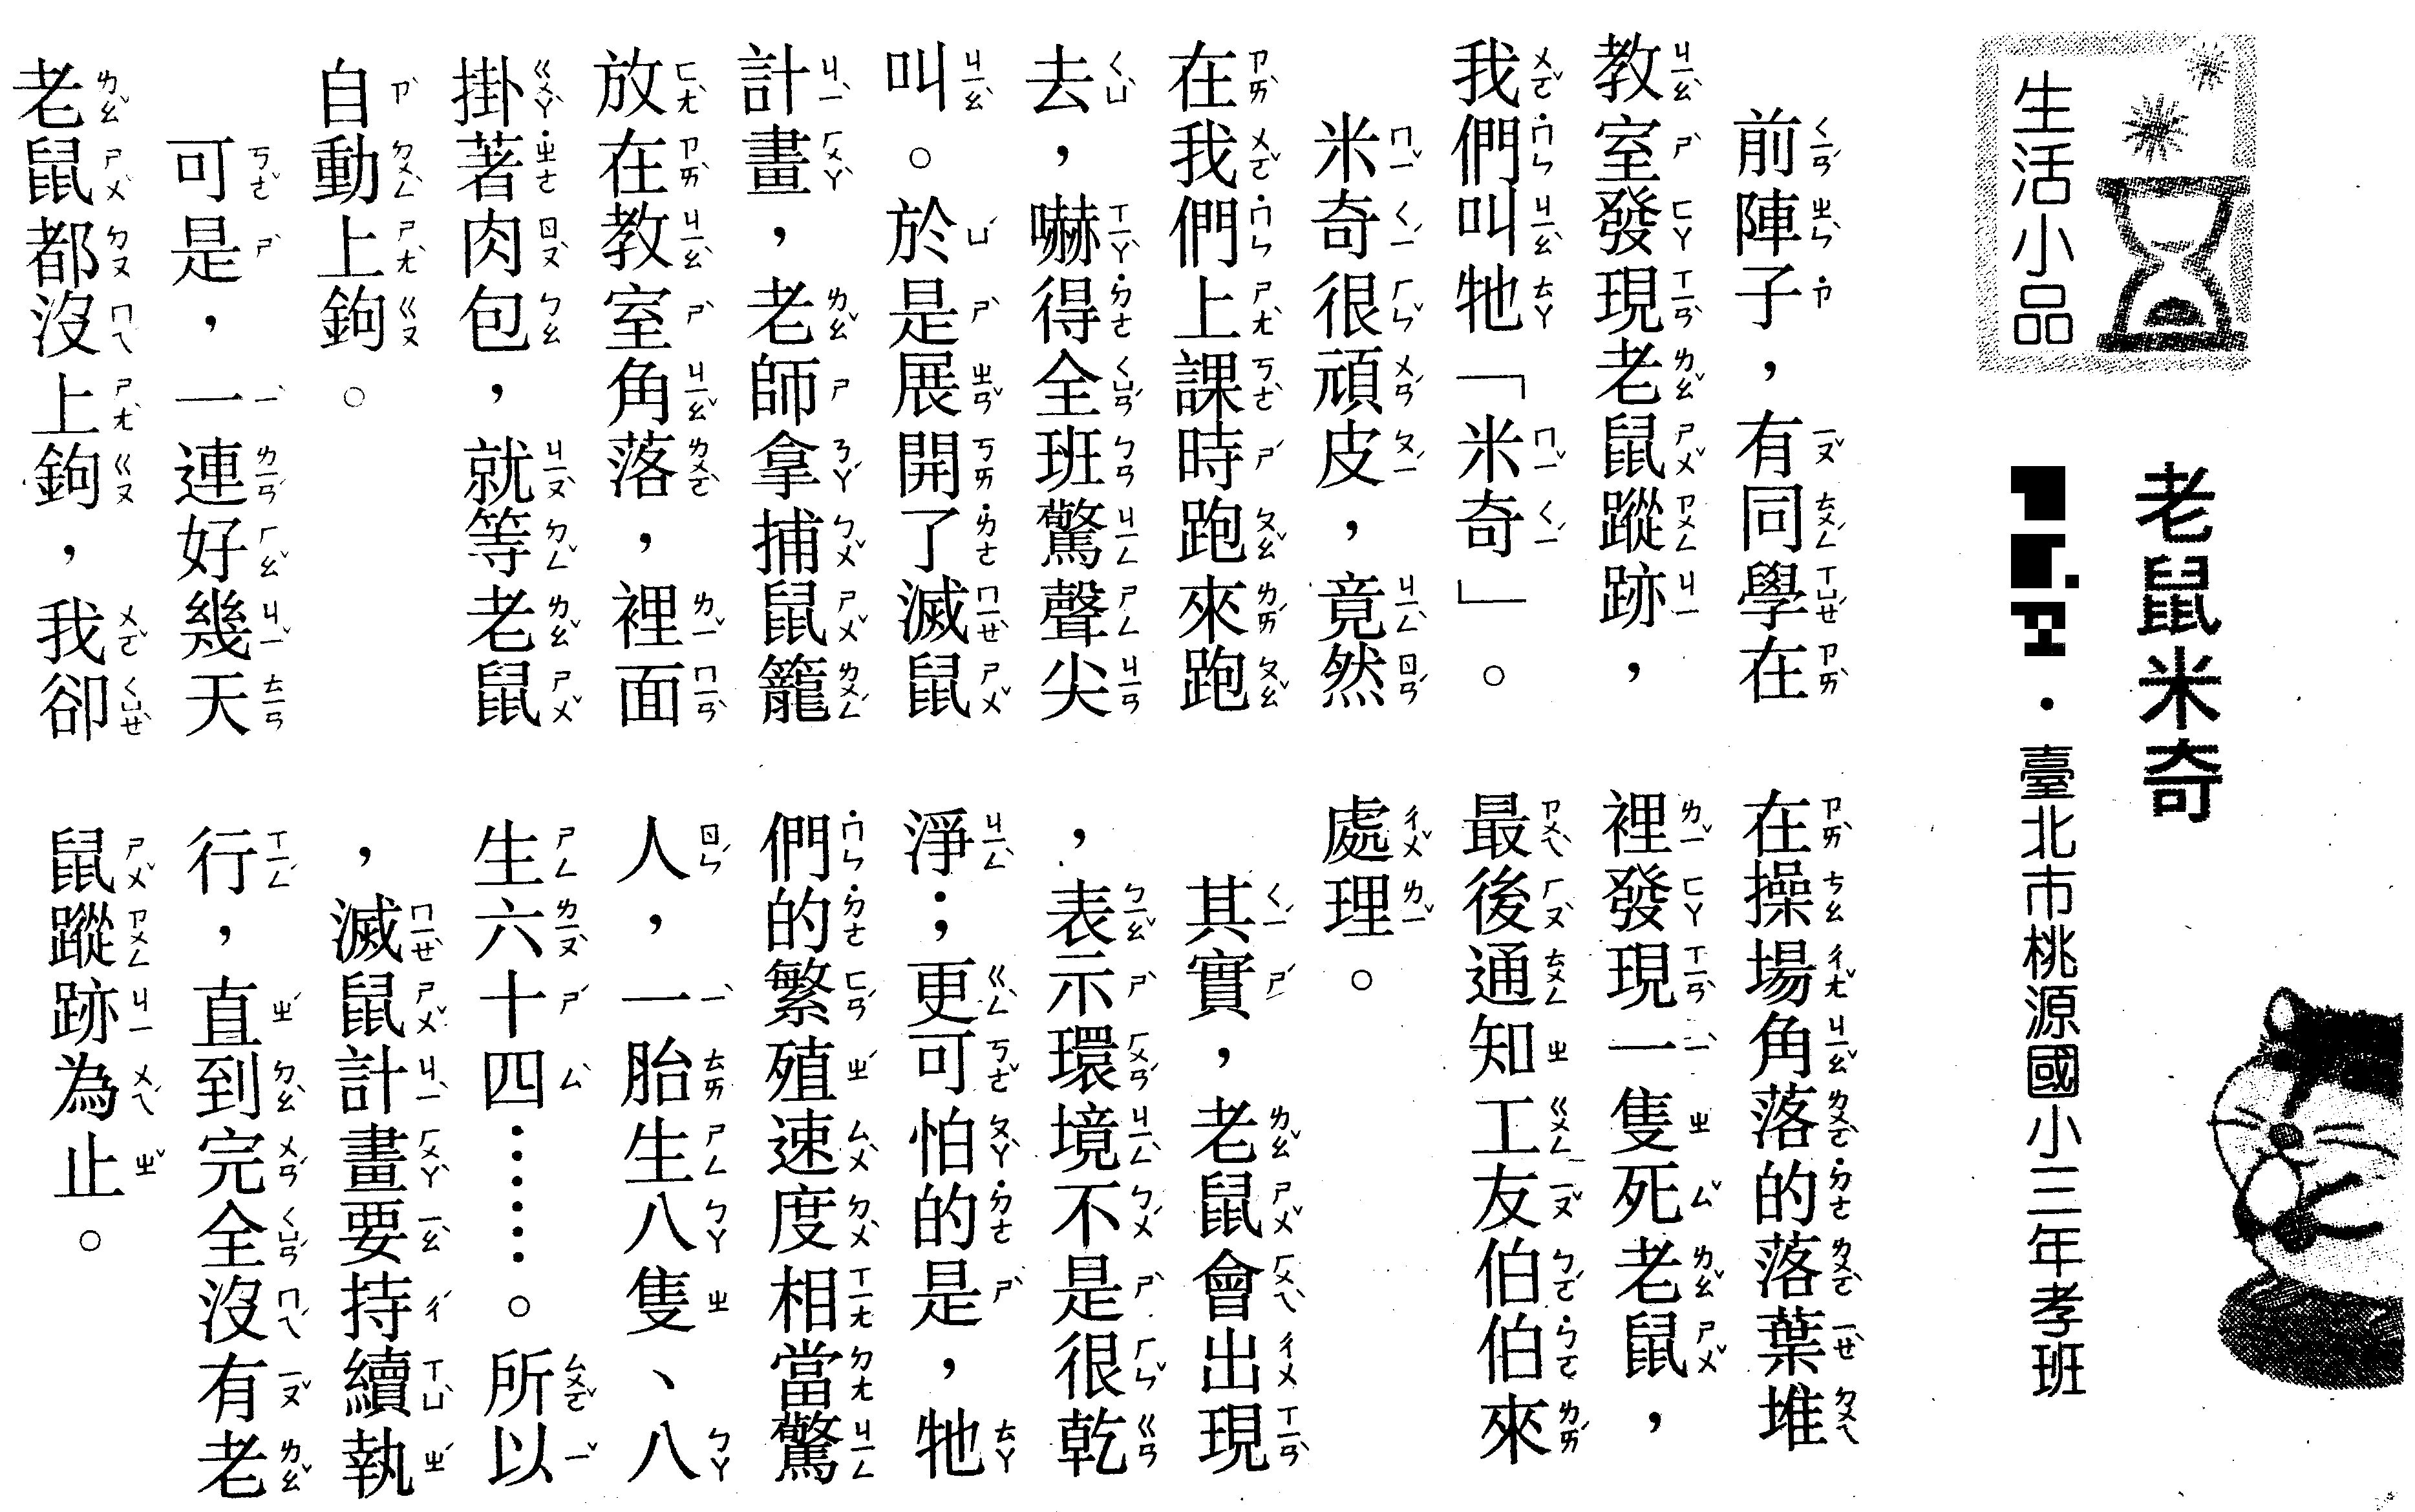 生活小品
老鼠米奇
・臺北市桃源國小三年孝班
前陣子，有同學在
教室發現老鼠蹤跡，
我們叫牠「米奇」。
米奇很頑皮，竟然
在我們上課時跑來跑
去，嚇得全班驚聲尖
叫。於是展開了滅鼠
計畫，老師拿捕鼠籠
放在教室角落，裡面
掛著肉包，就等老鼠
自動上鉤。
可是，一連好幾天
老鼠都沒上鉤，我卻
在操場角落的落葉堆
裡發現一隻死老鼠，
最後通知工友伯伯來
處理。
其實，老鼠會出現
，表示環境不是很乾
淨；更可怕的是，牠
們的繁殖速度相當驚
人，一胎生八隻、八
生六十四……。所以
，滅鼠計畫要持續執
行，直到完全沒有老
鼠蹤跡為止。